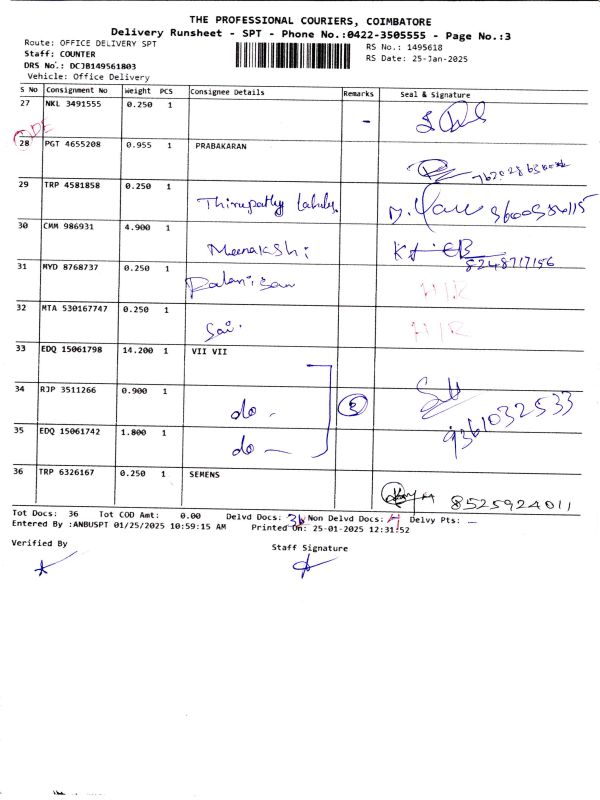 THE PROFESSIONAL COURIERS, COIMBATORE
Delivery Runsheet - SPT - Phone No.:0422-3505555 - Page No.:3
Route: OFFICE DELIVERY SPT
RS No.: 1495618
Staff: COUNTER
RS Date: 25-Jan-2025
DRS No.: DCJB149561803
Vehicle: Office Delivery
S No Consignment No Weight PCS Consignee Details Remarks Seal & Signature
27 NKL 3491555 0.250 1 -
DE
28 PGT 4655208 0.955 1 PRABAKARAN
29 TRP 4581858 0.250 1 Thirupathy 9600586115
30 CMM 986931 4.900 1 Meenakshi 8248717156
31 MYD 8768737 0.250 1 Palanisan H/R
32 MTA 530167747 0.250 1 Sai. H/R
33 EDQ 15061798 14.200 1 VII VII
34 RJP 3511266 0.900 1 do - 3 9361032533
35 EDQ 15061742 1.800 1 do -
36 TRP 6326167 0.250 1 SEMENS 8525924011
Tot Docs: 36 Tot COD Amt: 0.00 Delvd Docs: Non Delvd Docs: Delvy Pts: -
Entered By :ANBUSPT 01/25/2025 10:59:15 AM Printed On: 25-01-2025 12:31:52
Verified By
Staff Signature